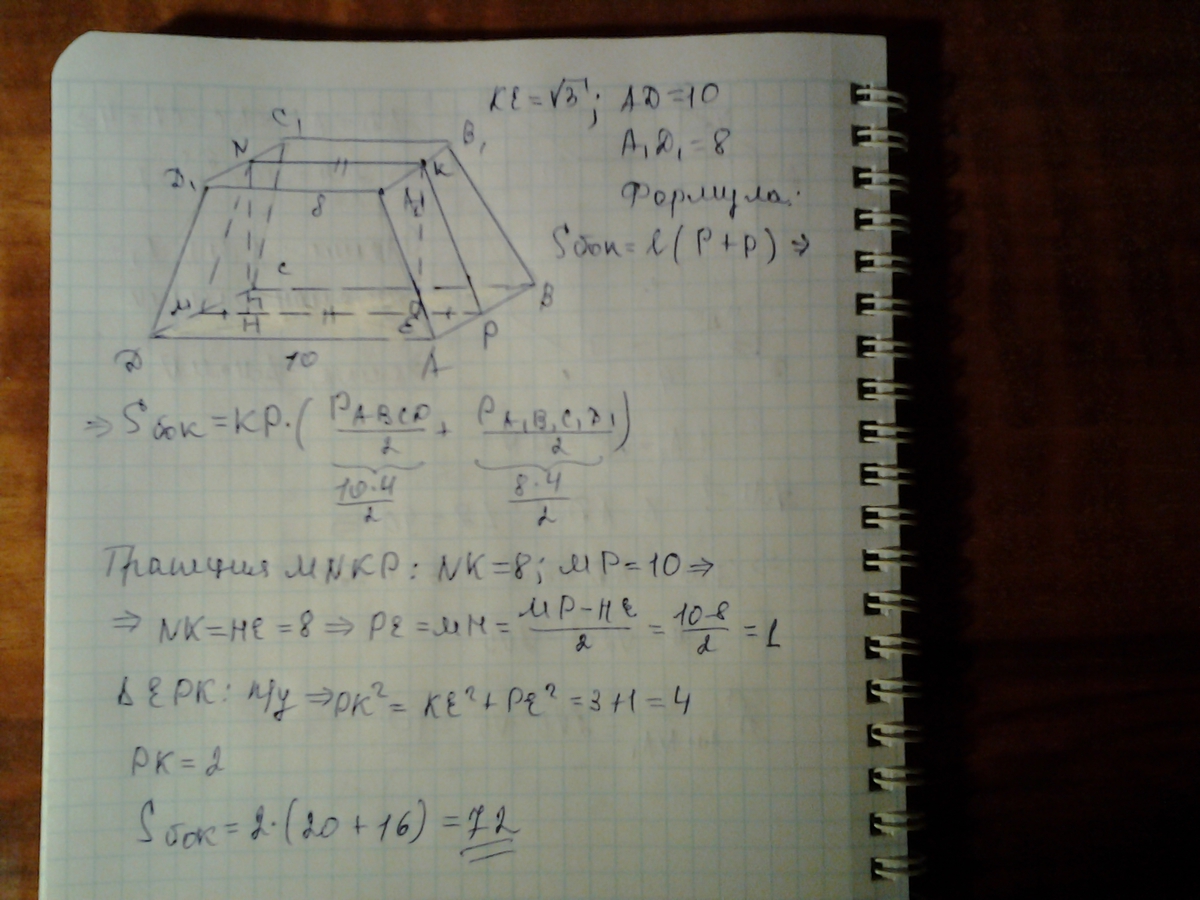 KE = √3; AD = 10
A₁D₁ = 8
Формула:
Sбок = l(P + p) ⇒
C₁
N
B₁
D₁
K
8
A₁
C
M
B
H
E
P
D
10
A
⇒ Sбок = KP · (P_ABCD/2 + P_A₁B₁C₁D₁/2)
10·4/2 8·4/2
Трапеция MNKP: NK = 8; MP = 10 ⇒
⇒ NK = HE = 8 ⇒ PE = MH = (MP − HE)/2 = (10-8)/2 = 1
Δ EPK: п/у ⇒ PK² = KE² + PE² = 3 + 1 = 4
PK = 2
Sбок = 2·(20 + 16) = 72